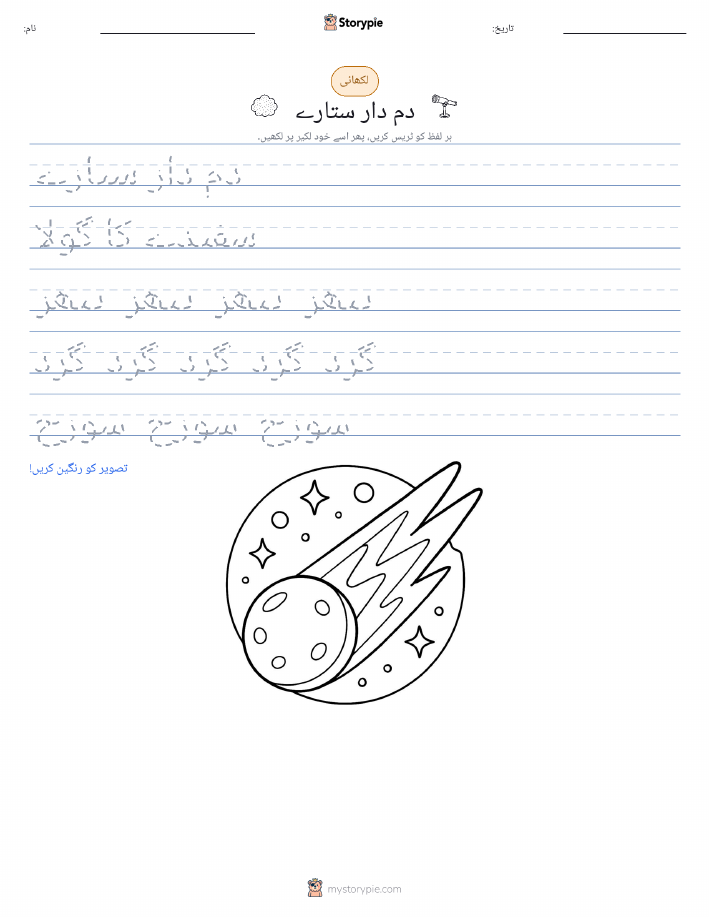 نام:
Storypie
تاریخ:
لکھائی
دم دار ستارے
ہر لفظ کو ٹریس کریں، پھر اسے خود لکیر پر لکھیں۔
دم دار ستارے
کا گولا
گرد گرد گرد گرد گرد
سورج سورج سورج
تصویر کو رنگین کریں!
mystorypie.com